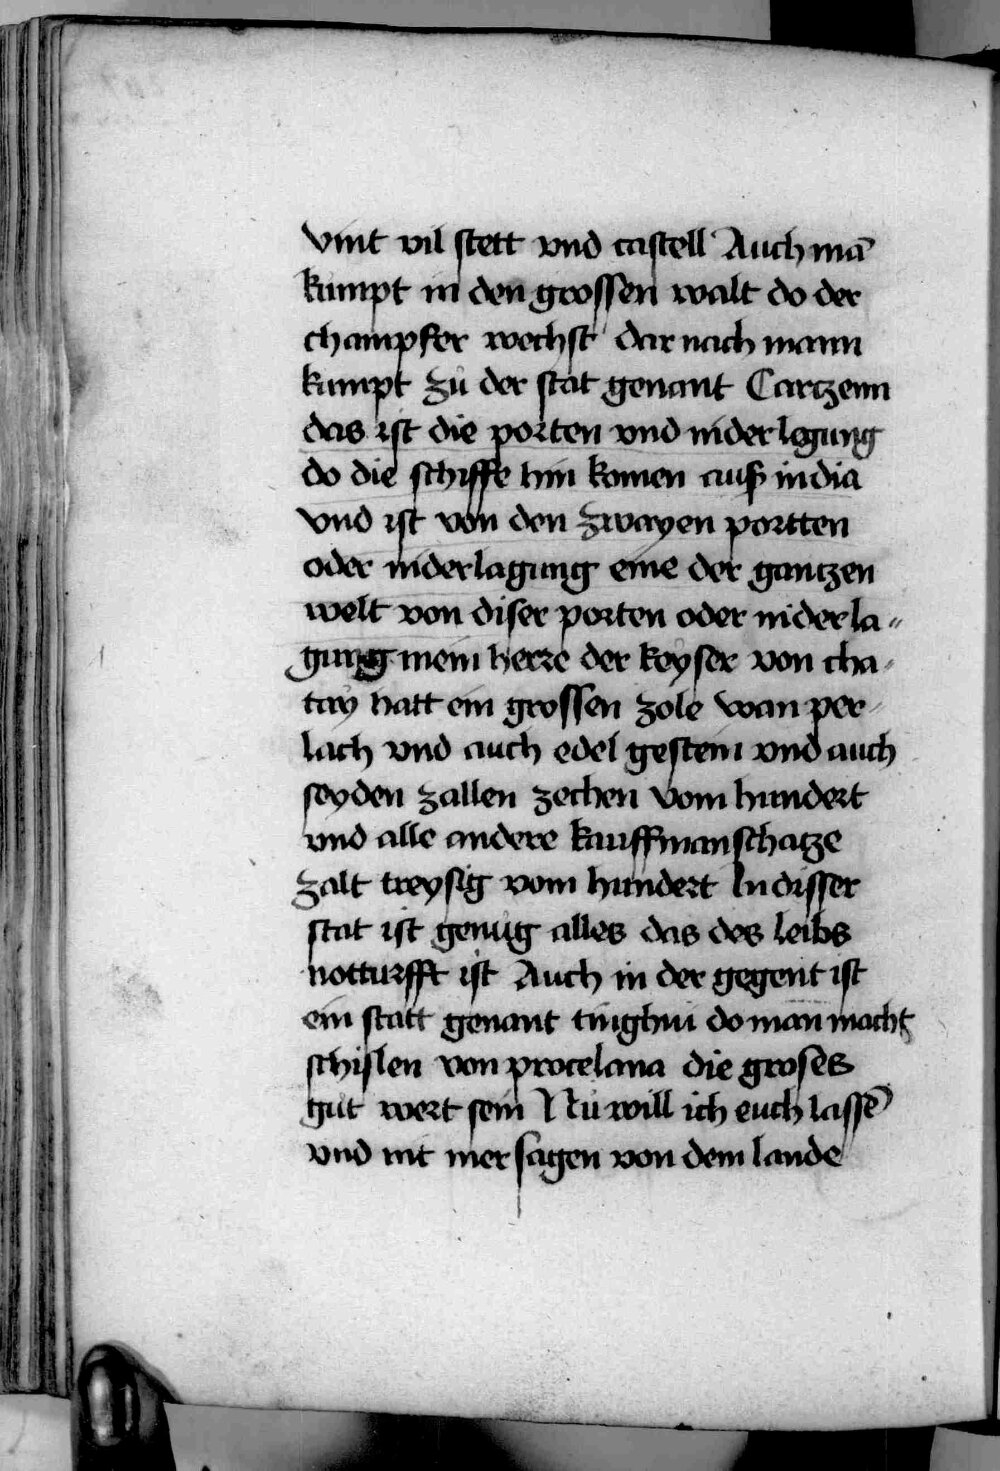 vint vil stett vnd castell Auch mā
kumpt in den grossen walt do der
champfer wechst dar nach mann
kumpt zů der stat genant Cartzenn
das ist die porten vnd niderlegung
do die schiffe hin komen auß india
vnd ist von den zwayen portten
oder niderlagung eine der gantzen
welt von diser porten oder niderla〃
gung mein herre der keyser von cha-
tay hatt ein grossen zole wan per-
lach vnd auch edel gestein vnd auch
seyden zallen zechen vom hundert
vnd alle andere kauffmanschatze
zalt treysig vom hundert In disser
stat ist genůg alles das des leibs
notturfft ist Auch in der gegent ist
ein statt genant tinghui do man macht
schislen von procelana die groses
gůt wert sein Nů will ich euch lassē
vnd nit mer sagen von dem lande